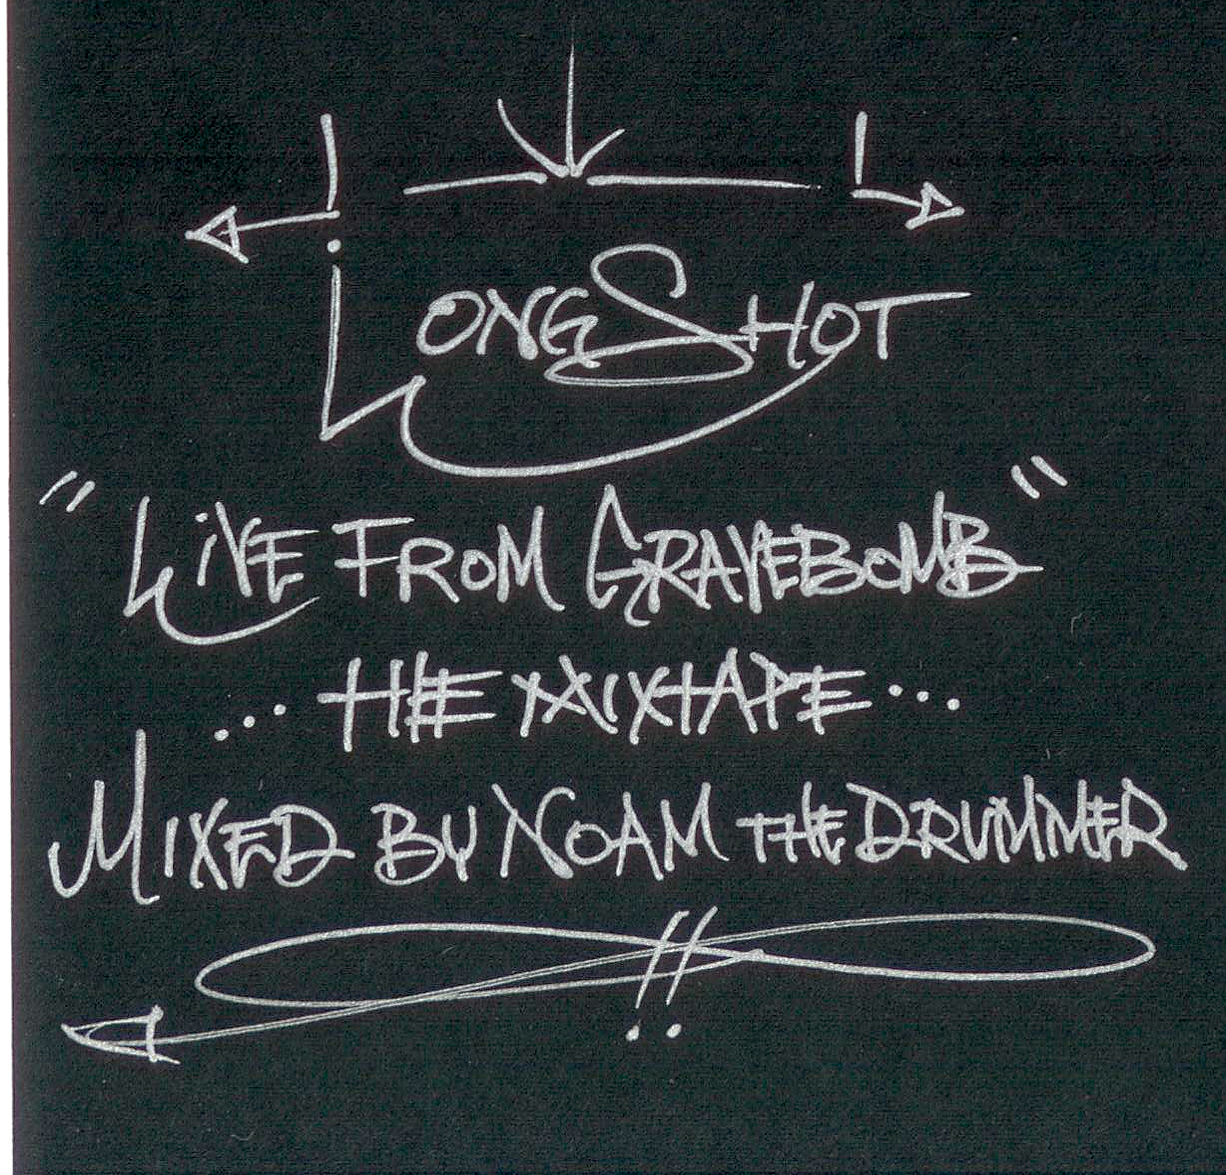 LONGSHOT
"LIVE FROM GRAVEBOMB"
...THE MIXTAPE...
MIXED BY NOAM THE DRUMMER
!!